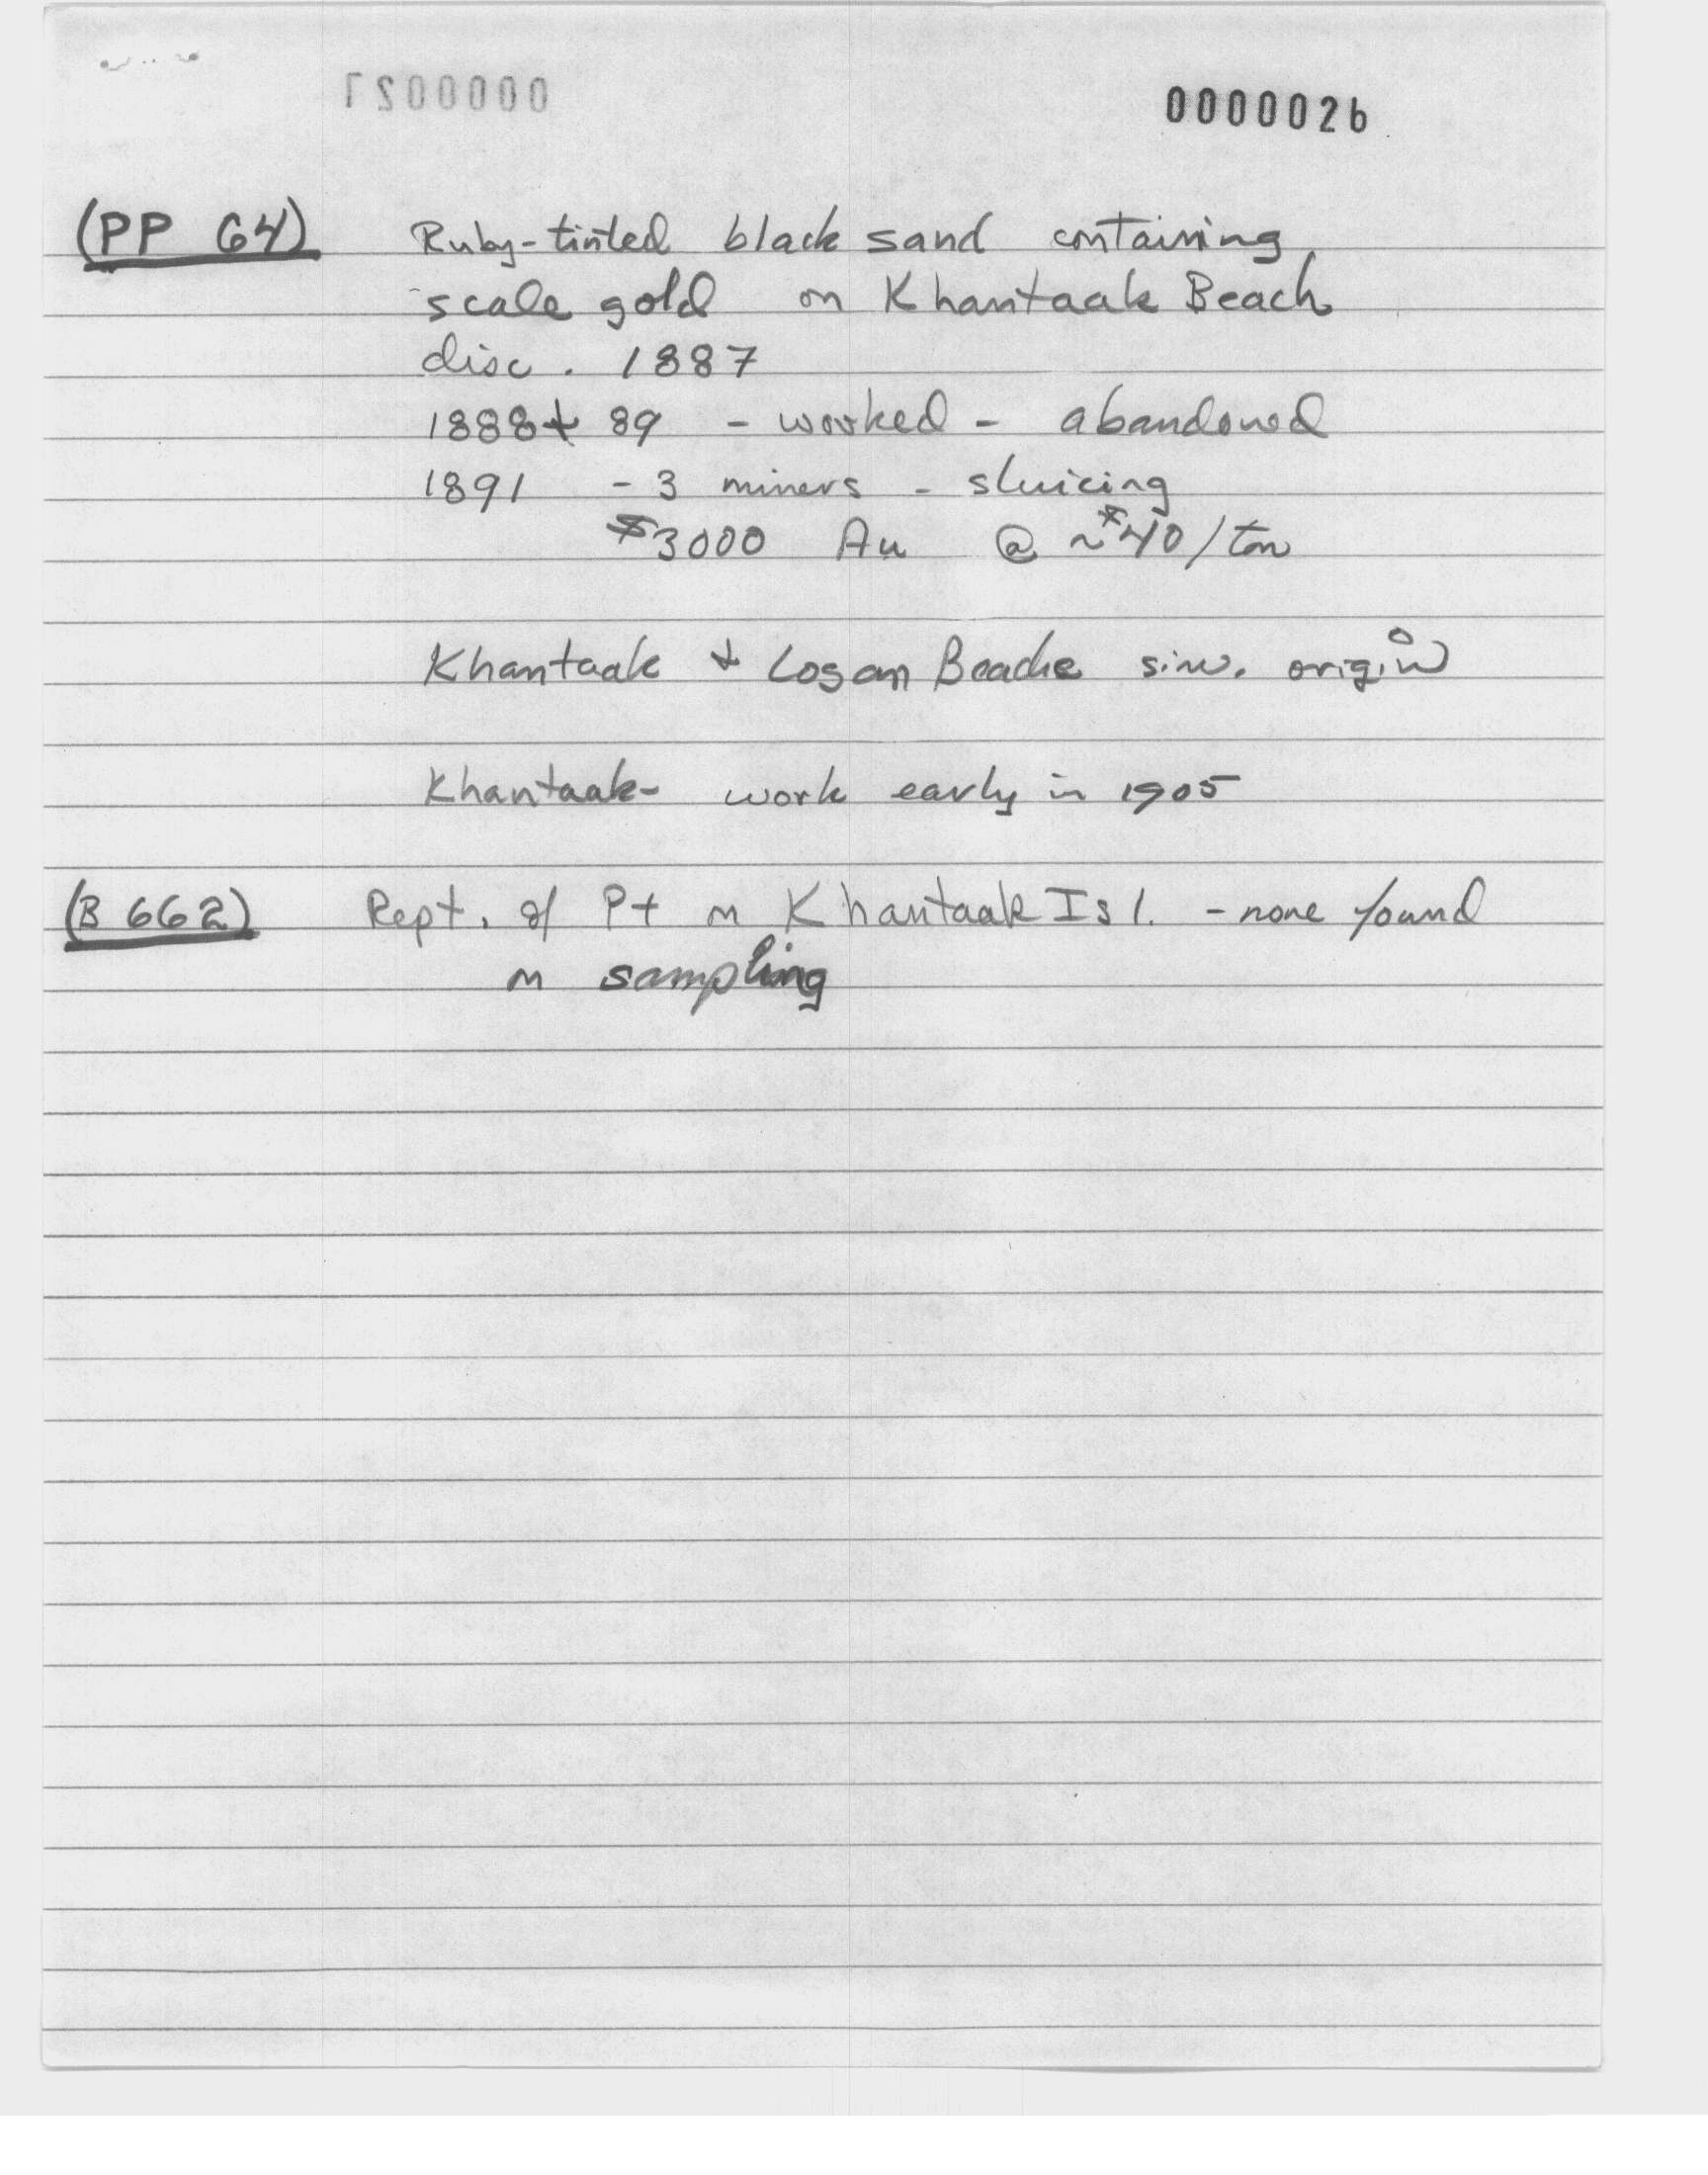 0000026
(PP 64) Ruby-tinted black sand containing
scale gold on Khantaak Beach
disc. 1887
1888 + 89 - worked - abandoned
1891 - 3 miners - sluicing
$3000 Au @ ~$40/ton
Khantaak + Logan Beache sim. origin
Khantaak- work early in 1905
(B 662) Rept. of Pt on Khantaak Isl. - none found
in sampling